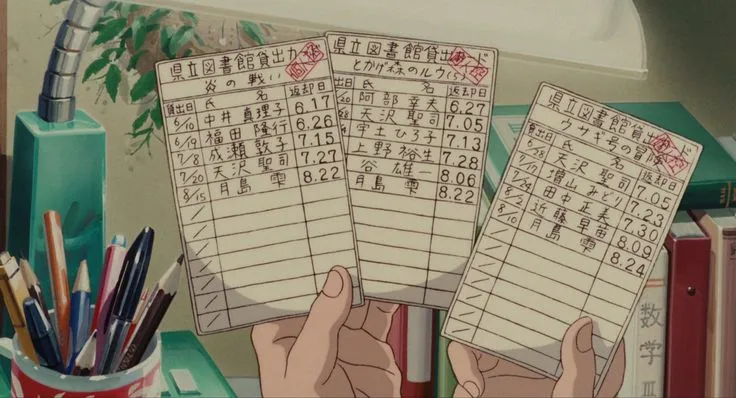 県立図書館貸出カード
炎の戦い
貸出日 氏 名 返却日
6/10 中井 真理子 6.17
6/19 福田 隆行 6.26
7/8 成瀬 敦子 7.15
7/20 天沢 聖司 7.27
8/15 月島 雫 8.22
県立図書館貸出カード
とかげ森のルウ(5)
出日 氏 名 返却日
/20 阿部 幸夫 6.27
/28 天沢 聖司 7.05
宇土 ひろ子 7.13
上野 裕生 7.28
谷 雄一 8.06
月島 雫 8.22
県立図書館貸出カード
ウサギ号の冒険
貸出日 氏 名 返却日
6/28 天沢 聖司 7.05
7/17 増山 みどり 7.23
7/24 田中 正美 7.30
8/2 近藤 早苗 8.09
8/10 月島 雫 8.24
数学Ⅲ